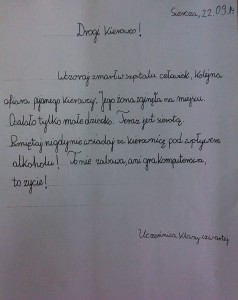 Siercza, 22.09.1
Drogi Kierowco!
Wczoraj zmarł w szpitalu człowiek, kolejna
ofiara pijanego kierowcy. Jego żona zginęła na miejscu.
Ocalało tylko małe dziecko. Teraz jest sierotą.
Pamiętaj nigdy nie wsiadaj za kierownicę pod wpływem
alkoholu! To nie zabawa, ani gra komputerowa,
to życie!
Uczennica klasy czwartej